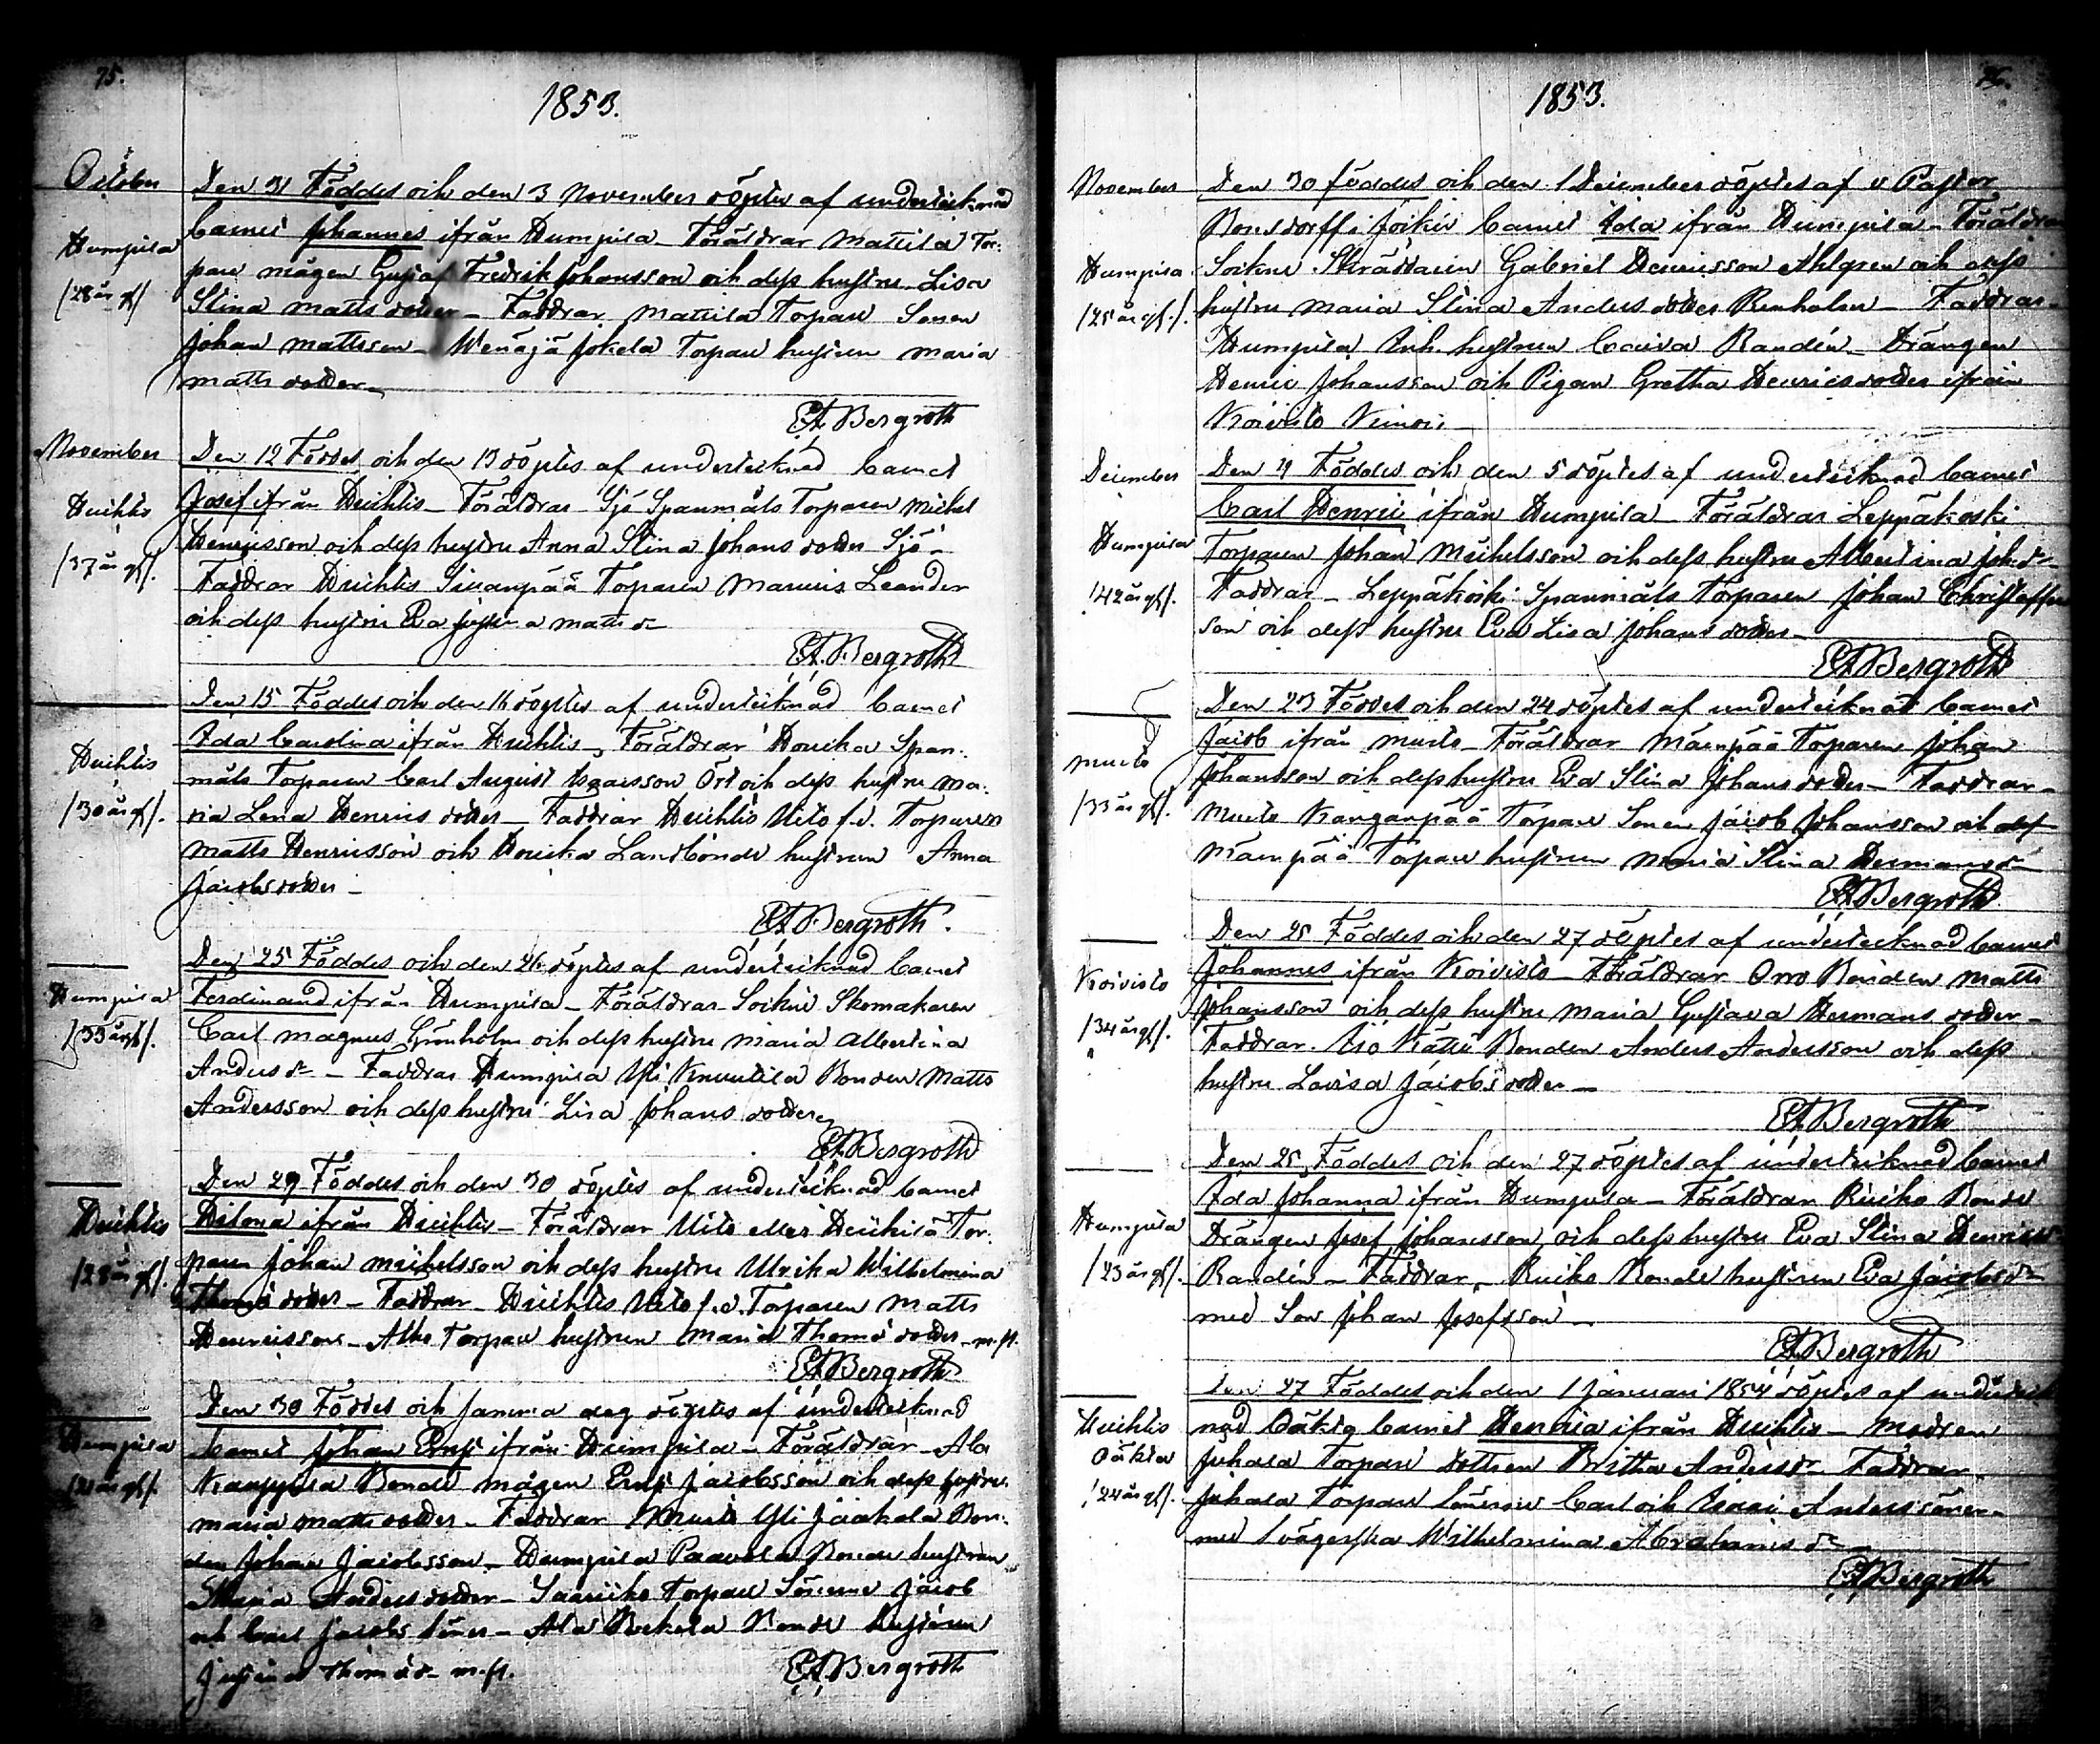 75.
1853.
October
Den 31 Föddes och den 3 November döptes af undertecknad
Barnet Johannes ifrån Humpila Föräldrar Mattila Tor-
Humpila
pare mågen Gustaf Fredrik Johansson och dess hustru Lisa
/28 år gl/
Stina Matts dotter – Faddrar Mattila Torpare Sonen
Johan Mattsson – Wenäjä Jokela Torpare hustrun Maria
Matts dotter –
EA Bergroth
November
Den 12 Föddes och den 13 döptes af undertecknad barnet
Huchtis
Josef ifrån Huchtis – Föräldrar Sjö Spanmåls Torparen Michel
Henricsson och dess hustru Anna Stina Johans dotter Sjö –
/37 år gl/.
Faddrar Huchtis Sivanpää Torparen Marcus Leander
och dess hustru Eva Justina Matts dr
EA Bergroth
Den 15 Föddes och den 16 döptes af undertecknad barnet
Ida Carolina ifrån Huchtis – Föräldrar Span-
Huchtis
måls Torparen Carl August Isaacsson Ört och dess hustru Ma-
/30 år gl/.
ria Lena Henrics dotter – Faddrar Huchtis Uito f.d. Torparen
Matts Henricsson och Landbonde hustrun Anna
Jacobs dotter –
EA Bergroth.
Den 25 Föddes och den 26 döptes af undertecknad barnet
Humpila
Ferdinand ifrån Humpila – Föräldrar Sockne Skomakaren
/33 år gl/.
Carl Magnus Grönholm och dess hustru Maria Albertina
Anders dr – Faddrar Humpila Yli Knuutila Bonden Matts
Andersson och dess hustru Lisa Johans dotter
EA Bergroth
Den 29 Föddes och den 30 döptes af undertecknad barnet
Huchtis
ifrån Huchtis – Föräldrar Uito eller Tor-
/28 år gl/.
paren Johan Michelsson och dess hustru Ulrika Wilhelmina
Thomä dotter – Faddrar – Huchtis Uito f.d. Torparen Matts
Henricsson – Torpare hustrun Maria Thomä dotter – m.fl.
EA Bergroth
Den 30 Föddes och samma dag döptes af undertecknad
Humpila
barnet Johan Ernst ifrån Humpila – Föräldrar – Ala
/21 år gl/.
Bonde mågen Ernst Jacobsson och dess hustru
Maria Matts dotter – Faddrar Murto Yli Jaakola Bon-
den Johan Jacobsson – Humpila Paavola Bonde hustrun
Anders dotter – Torpare Sönerne Jacob
och Carl Jacobs söner – Ala Bonde hustrun
Justina Thomä dr – m.fl.
EA Bergroth
1853.
November
Den 30 föddes och den 1 December döptes af v Pastor
Bonsdorff i Jockis barnet Ada ifrån Humpila – Föräldrar
Humpila
Sockne Skräddaren Gabriel Henricsson Ahlgren och dess
/25 år gl./.
hustru Maria Stina Anders dotter – Faddrar –
Humpila Inh. hustrun Randén – Drängen
Henric Johansson och Pigan Gretha Henrics dotter ifrån
Koivisto
December
Den 4 Föddes och den 5 döptes af undertecknad barnet
Carl Henric ifrån Humpila – Föräldrar Leppäkoski
Humpila
Torparen Johan Michelsson och dess hustru Albertina Joh. dr
/42 år gl/.
Faddrar – Leppäkoski Spanmåls Torparen Johan Christoffers
son och dess hustru Eva Lisa Johans dotter –
EA Bergroth
Den 23 Föddes och den 24 döptes af undertecknad barnet
Murto
Jacob ifrån Murto – Föräldrar Mäenpää Torparen Johan
/33 år gl/.
Johansson och dess hustru Eva Stina Johans dotter – Faddrar –
Murto Kangaspää Torpare Sonen Jacob Johansson och
Mäenpää Torpare hustrun Maria Stina Hermans dr
EA Bergroth
Den 25 Föddes och den 27 döptes af undertecknad barnet
Koivisto
Johannes ifrån Koivisto – Föräldrar Orro Bonden Matts
/34 år gl/.
Johansson och dess hustru Maria Gustava Hermans dotter –
Faddrar. Iso Bonden Anders Andersson och dess
hustru Lovisa Jacobs dotter –
EA Bergroth
Den 25 Föddes och den 27 döptes af undertecknad barnet
Humpila
Ida Johanna ifrån Humpila – Föräldrar Bonde
Drängen Josef Johansson och dess hustru Eva Stina Henrics
/23 år gl/.
Randén – Faddrar – Bonde hustrun Eva Jacobs dr
med Son Johan Josefsson –
EA Bergroth
Den 27 Föddes och den 1 Januari 1854 döptes af underteck
Huchtis
nad Oäkta barnet Henrica ifrån Huchtis – Modren
Oäkta
Juhala Torpare dottren Britha Anders dr Faddrar –
/24 år gl/.
Juhala Torpare Sönerne Carl och Isaac Anders söner –
med Svägerska Wilhelmina Abrahams dr –
EA Bergroth